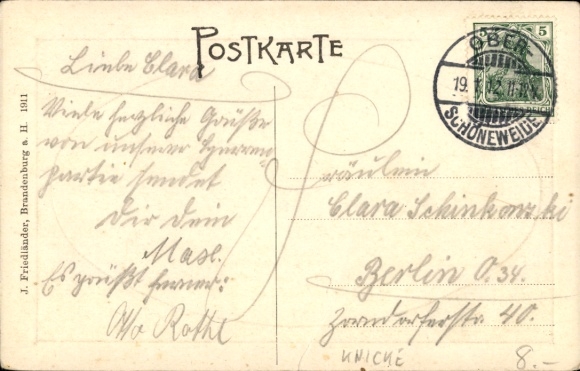 POSTKARTE
Liebe Clara
Viele herzliche Grüße
von unserer
partie sendet
Dir Dein
Max.
Es grüßt ferner:
Otto Rothe
Fräulein
Clara Schinkowski
Berlin O. 34.
Zorndorferstr. 40.
KNICKE
8.-
J. Friedländer, Brandenburg a. H. 1911
5
OBER-
19.1.12.
SCHÖNEWEIDE